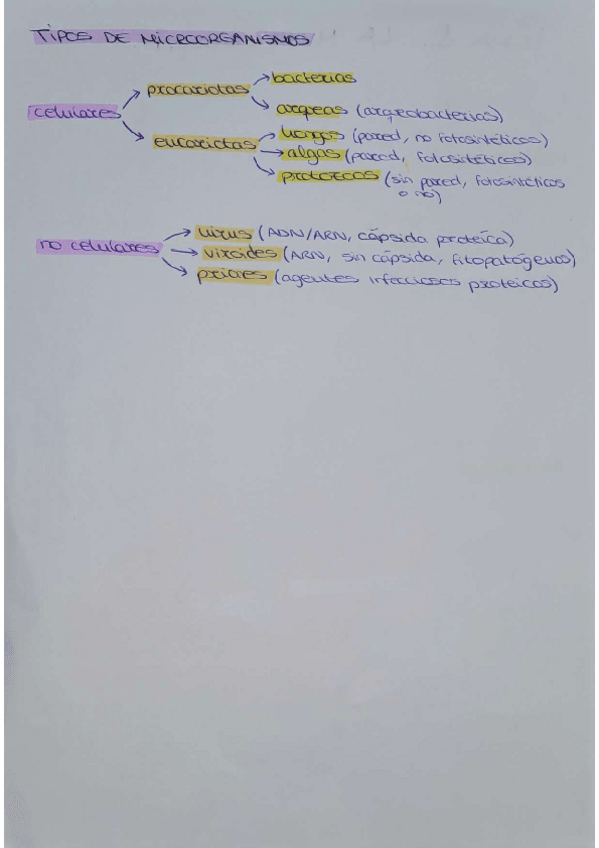 TIPOS DE MICROORGANISMOS
bacterias
procariotas
arqueas (arqueobacterias)
celulares
hongos (pared, no fotosintéticos)
eucariotas
algas (pared, fotosintéticos)
protozoos (sin pared, fotosintéticos
o no)
virus (ADN/ARN, cápsida proteica)
no celulares
viroides (ARN, sin cápsida, fitopatógenos)
priones (agentes infecciosos proteicos)